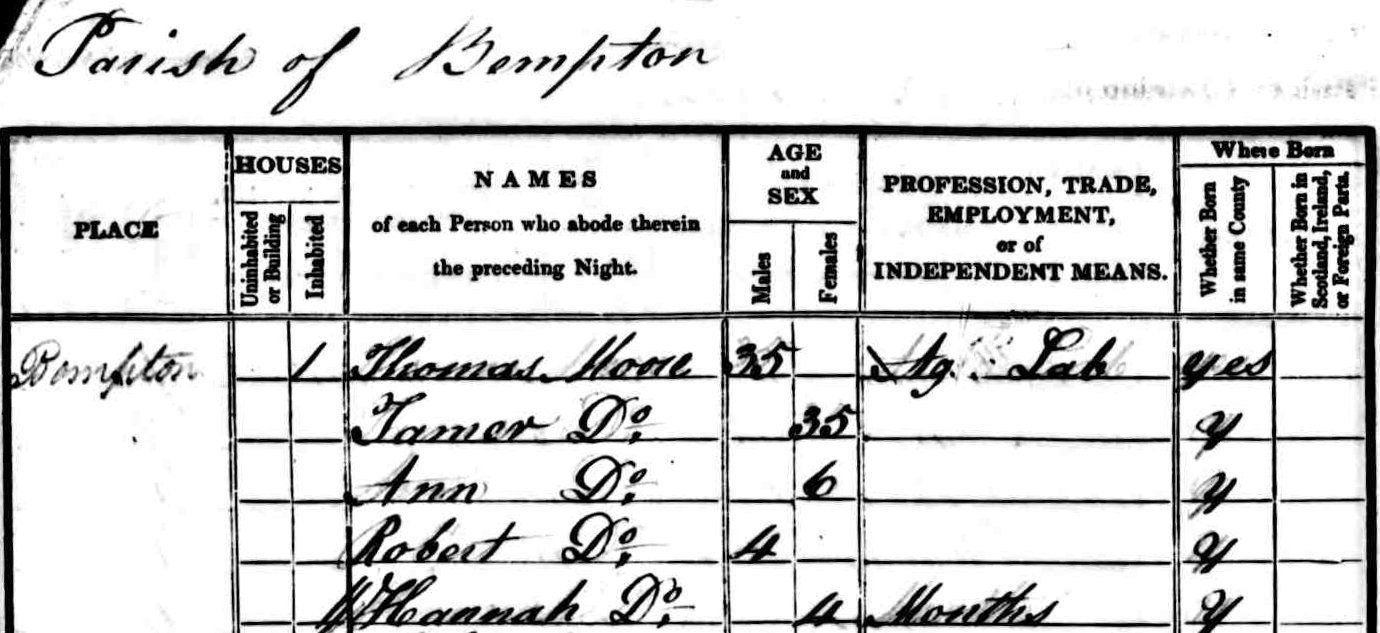 Parish of Bempton
PLACE
HOUSES
Uninhabited or Building
Inhabited
NAMES
of each Person who abode therein
the preceding Night.
AGE
and
SEX
Males
Females
PROFESSION, TRADE,
EMPLOYMENT,
or of
INDEPENDENT MEANS.
Where Born
Whether Born in same County
Whether Born in Scotland, Ireland, or Foreign Parts.
Bempton 1 Thomas Moore 35 Ag. Lab yes
Tamer Do. 35 y
Ann Do. 6 y
Robert Do. 4 y
Hannah Do. 4 Months y